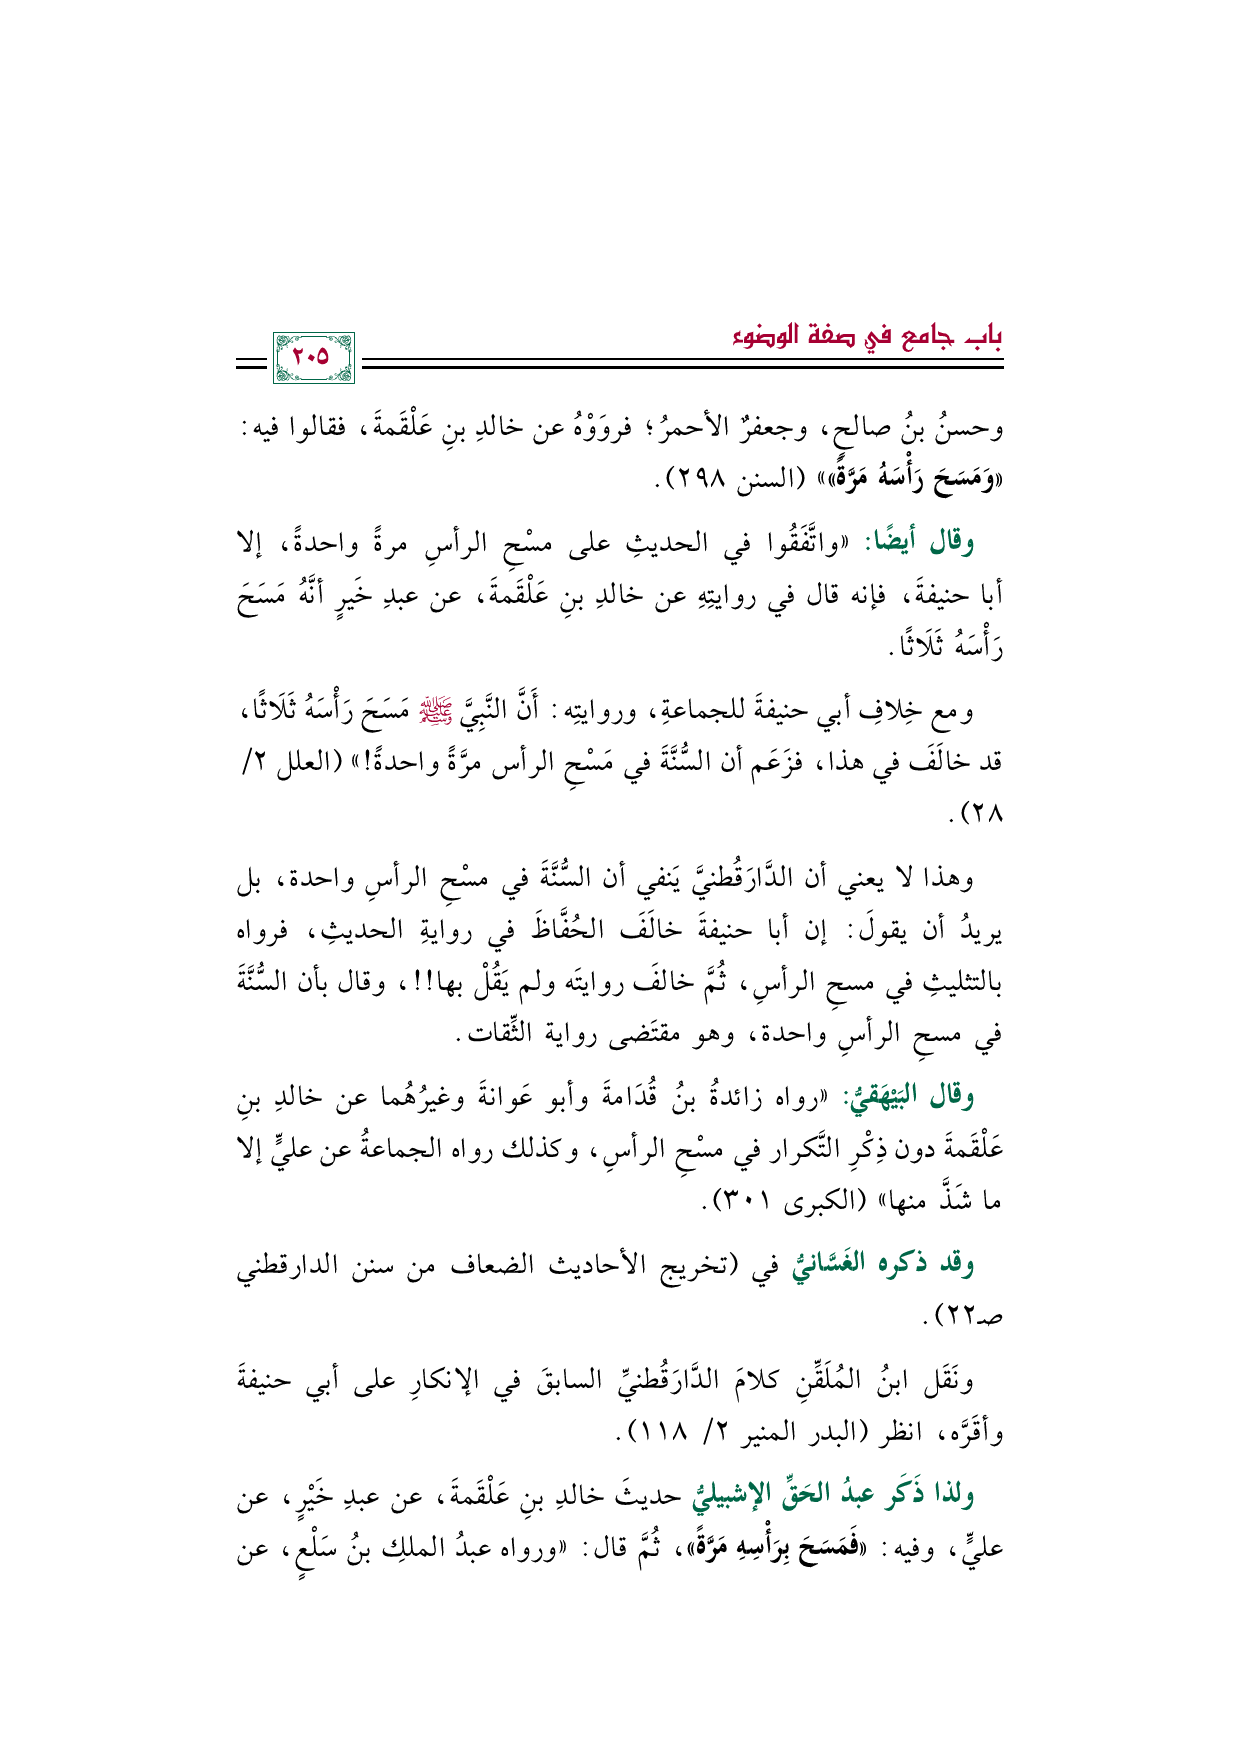 باب جامع في صفة الوضوء
٢٠٥
وحسنُ بنُ صالحٍ، وجعفرٌ الأحمرُ؛ فروَوْهُ عن خالدِ بنِ عَلْقَمةَ، فقالوا فيه:
«وَمَسَحَ رَأْسَهُ مَرَّةً»» (السنن ٢٩٨).
وقال أيضًا: «واتَّفَقُوا في الحديثِ على مسْحِ الرأسِ مرةً واحدةً، إلا
أبا حنيفةَ، فإنه قال في روايتِهِ عن خالدِ بنِ عَلْقَمةَ، عن عبدِ خَيرٍ أنَّهُ مَسَحَ
رَأْسَهُ ثَلَاثًا.
ومع خِلافِ أبي حنيفةَ للجماعةِ، وروايتِه: أَنَّ النَّبِيَّ ﷺ مَسَحَ رَأْسَهُ ثَلَاثًا،
قد خالَفَ في هذا، فزَعَم أن السُّنَّةَ في مَسْحِ الرأس مرَّةً واحدةً!» (العلل ٢/
٢٨).
وهذا لا يعني أن الدَّارَقُطنيَّ يَنفي أن السُّنَّةَ في مسْحِ الرأسِ واحدة، بل
يريدُ أن يقولَ: إن أبا حنيفةَ خالَفَ الحُفَّاظَ في روايةِ الحديثِ، فرواه
بالتثليثِ في مسحِ الرأسِ، ثُمَّ خالفَ روايتَه ولم يَقُلْ بها!!، وقال بأن السُّنَّةَ
في مسحِ الرأسِ واحدة، وهو مقتَضى رواية الثِّقات.
وقال البَيْهَقيُّ: «رواه زائدةُ بنُ قُدَامةَ وأبو عَوانةَ وغيرُهُما عن خالدِ بنِ
عَلْقَمةَ دون ذِكْرِ التَّكرار في مسْحِ الرأسِ، وكذلك رواه الجماعةُ عن عليٍّ إلا
ما شَذَّ منها» (الكبرى ٣٠١).
وقد ذكره الغَسَّانيُّ في (تخريج الأحاديث الضعاف من سنن الدارقطني
صـ٢٢).
ونَقَل ابنُ المُلَقِّنِ كلامَ الدَّارَقُطنيِّ السابقَ في الإنكارِ على أبي حنيفةَ
وأقَرَّه، انظر (البدر المنير ٢/ ١١٨).
ولذا ذَكَر عبدُ الحَقِّ الإشبيليُّ حديثَ خالدِ بنِ عَلْقَمةَ، عن عبدِ خَيْرٍ، عن
عليٍّ، وفيه: «فَمَسَحَ بِرَأْسِهِ مَرَّةً»، ثُمَّ قال: «ورواه عبدُ الملكِ بنُ سَلْعٍ، عن